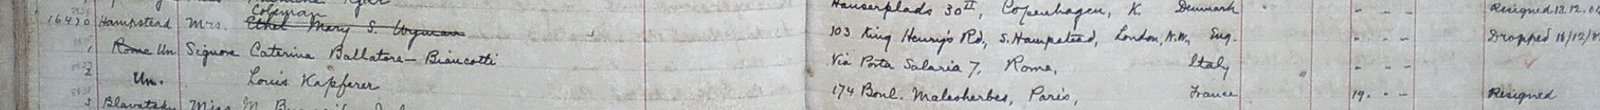 Hauserplads 30II, Copenhagen, K. Denmark Resigned 13.12.
Coleman
16470 Hampstead Mrs. Ethel Mary S. Wyman 103 King Henry's Rd, S. Hampstead, London, N.W. Eng. - - - Dropped 16/12/
1 Rome Un Signora Caterina Ballatore-Biancotti Via Porta Salaria 7, Rome, Italy - - -
2 Un. Louis Kapferer 174 Boul. Malesherbes, Paris, France 19. - - Resigned
3 Blavatsky Miss M.